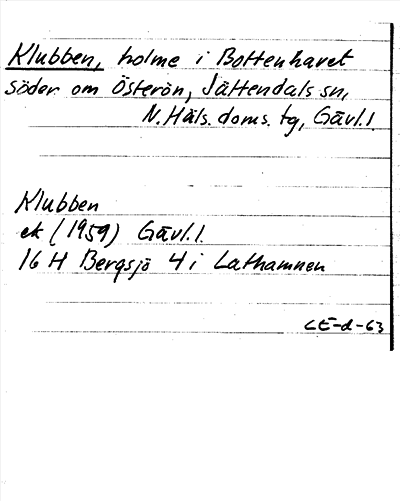 Klubben, holme i Bottenhavet
söder om Österön, Jättendals sn,
N. Häls. doms. tg, Gävl. l.
Klubben
ek (1959) Gävl. l.
16 H Bergsjö 4 i Lathamnen
CE-d-63